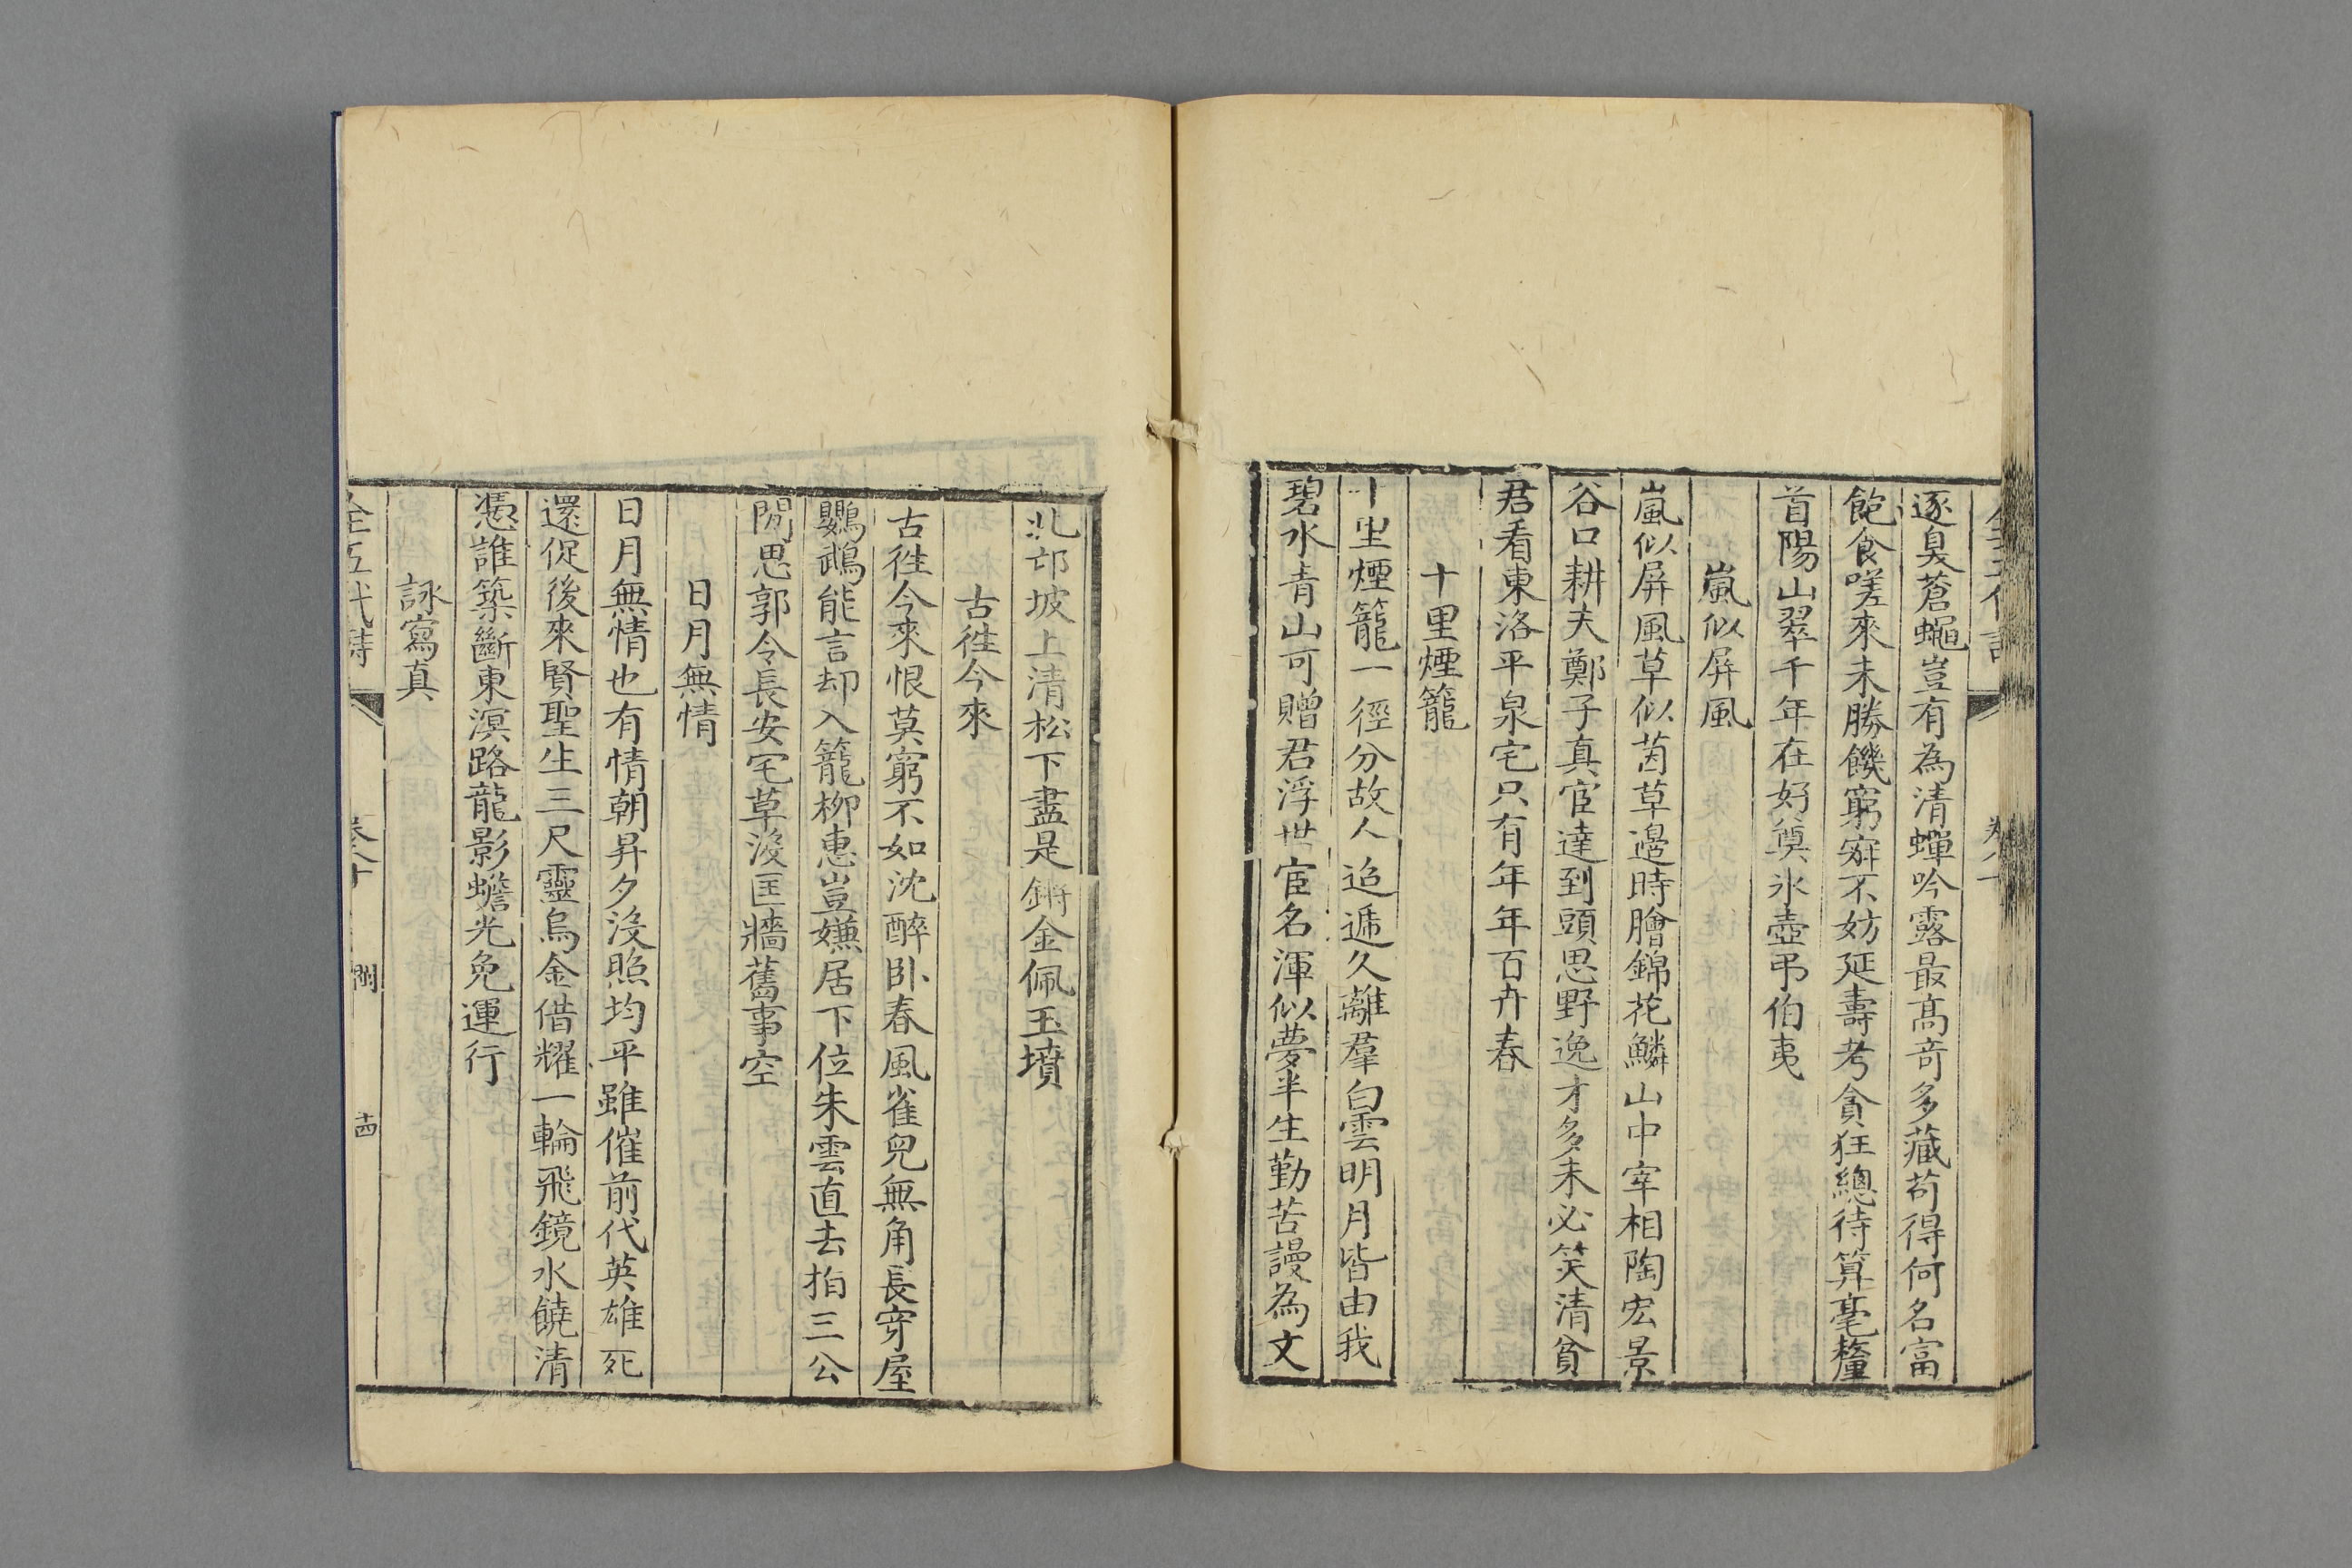 逐臭蒼蠅豈有為清蟬吟露最高奇多藏苟得何名富
飽食嗟來未勝饑窮寂不妨延壽考貪狂總待算毫釐
首陽山翠千年在好奠氷壺弔伯夷
嵐似屏風
嵐似屏風草似茵草邊時膾錦花鱗山中宰相陶宏景
谷口耕夫鄭子真宦達到頭思野逸才多未必笑清貧
君看東洛平泉宅只有年年百卉春
十里煙籠
十里煙籠一徑分故人迢遞久離羣白雲明月皆由我
碧水青山可贈君浮世宦名渾似夢半生勤苦謾為文
北邙坡上清松下盡是鏘金佩玉墳
古徃今來
古徃今來恨莫窮不如沈醉卧春風雀兒無角長穿屋
鸚鵡能言却入籠柳惠豈嫌居下位朱雲直去指三公
閒思郭令長安宅草沒匡牆舊事空
日月無情
日月無情也有情朝昇夕沒照均平雖催前代英雄死
還促後來賢聖生三尺靈烏金借耀一輪飛鏡水饒清
憑誰築斷東溟路龍影蟾光免運行
詠寫真
全五代詩 卷八十 十四